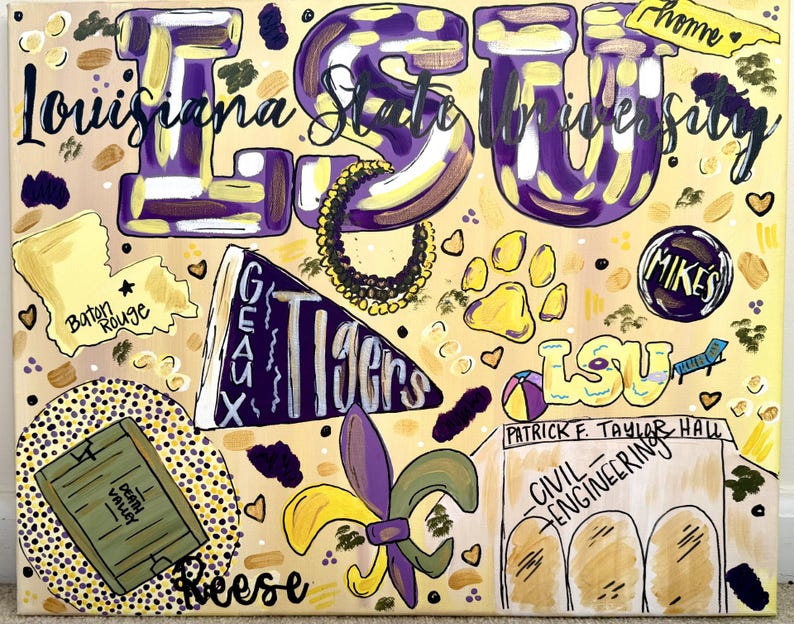 LSU
home
Louisiana State University
Baton
Rouge
GEAUX
Tigers
MIKE'S
LSU
PATRICK F. TAYLOR HALL
CIVIL
ENGINEERING
DEATH
VALLEY
Reese